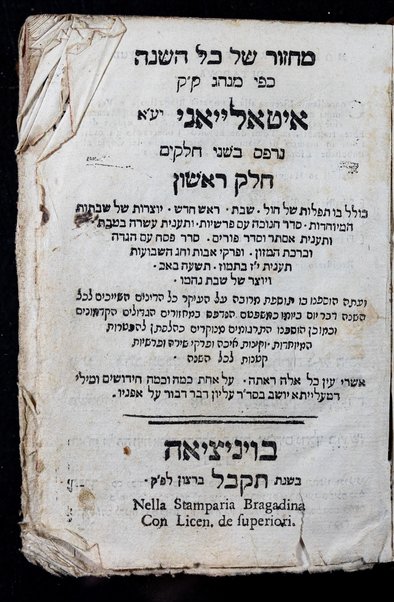 מחזור של כל השנה
כפי מנהג ק״ק
איטאלייאני יע״א
נדפס בשני חלקים
חלק ראשון
כולל בו תפלות של חול · שבת · ראש חדש · יוצרות של שבתות
המיוחדות · סדר חנוכה עם פרשיות · ותענית עשרה בטבת ·
ותענית אסתר וסדר פורים · סדר פסח עם הגדה
וברכת המזון · ופרקי אבות וחג השבועות
תענית י״ז בתמוז · תשעה באב ·
ויוצר של שבת נחמו ·
ועתה הוספנו בו תוספת מרובה על העיקר כל הדינים השייכים לכל
השנה דבר יום ביומו כמשפטם הנדפס במחזורים הגדולים הקדמונים
וכמו כן הוספנו התרגומים
המיוחדות · וקינות איכה ופרקי שירה ופרשיות
קטנות לכל השנה ·
אשרי עין כל אלה ראתה · על אחת כמה וכמה חידושים ומילי
דמעלייתא יושב בסת״ר עליון דבר דבור על אפניו ·
בויניציאה
בשנת תקבל ברצון לפ״ק ·
Nella Stamparia Bragadina
Con Licen. de ſuperiori.